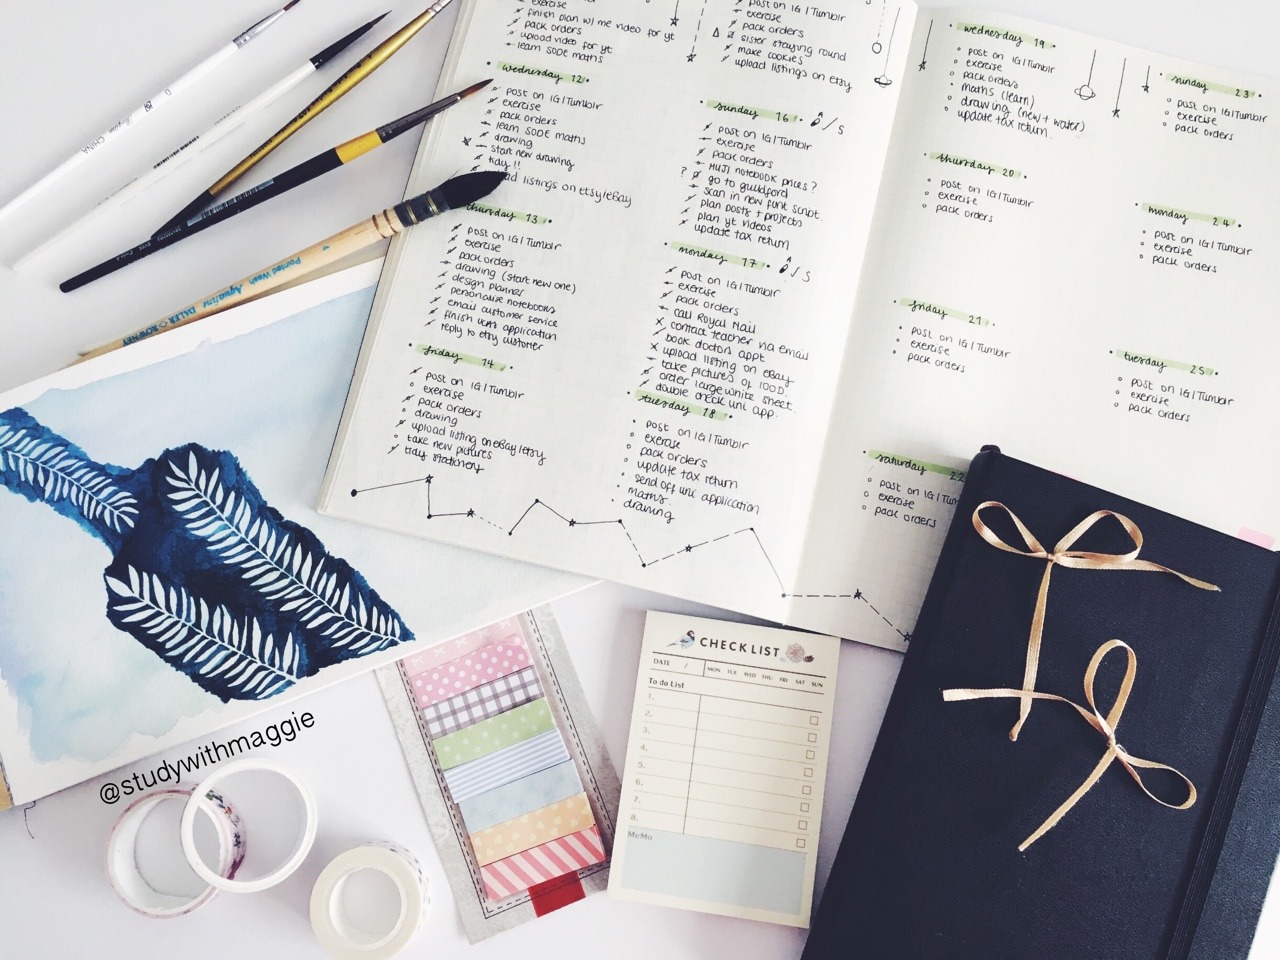 exercise
finish plan w/ me video for yt
pack orders
upload video for yt
learn SODE maths
wednesday 12
post on IG/Tumblr
exercise
pack orders
learn SODE maths
drawing
start new drawing
tidy !!
listings on etsy/eBay
thursday 13
post on IG/Tumblr
exercise
pack orders
drawing (start new one)
design planner
personalise notebooks
email customer service
finish application
reply to etsy customer
friday 14
post on IG/Tumblr
exercise
pack orders
drawing
upload listing on eBay/etsy
take new pictures
tidy stationery
post on IG/Tumblr
exercise
pack orders
sister staying round
make cookies
upload listings on etsy
sunday 16 / S
post on IG/Tumblr
exercise
pack orders
MUJI notebook prices?
? go to guildford
scan in new font script
plan posts + projects
plan yt videos
update tax return
monday 17 / S
post on IG/Tumblr
exercise
pack orders
call Royal Mail
contact teacher via email
book doctors appt
upload listing on eBay
take pictures of 100D
order large white sheet
double check uni app.
tuesday 18
post on IG/Tumblr
exercise
pack orders
update tax return
send off uni application
maths
drawing
wednesday 19
post on IG/Tumblr
exercise
pack orders
maths (learn)
drawing (new + water)
update tax return
thursday 20
post on IG/Tumblr
exercise
pack orders
friday 21
post on IG/Tumblr
exercise
pack orders
saturday 22
post on IG/Tum
exercise
pack orders
sunday 23
post on IG/Tumblr
exercise
pack orders
monday 24
post on IG/Tumblr
exercise
pack orders
tuesday 25
post on IG/Tumblr
exercise
pack orders
CHINA
DALER ROWNEY Aquafine Pointed Wash
@studywithmaggie
CHECKLIST
DATE / MON TUE WED THU FRI SAT SUN
To do List
1.
2.
3.
4.
5.
6.
7.
8.
MeMo